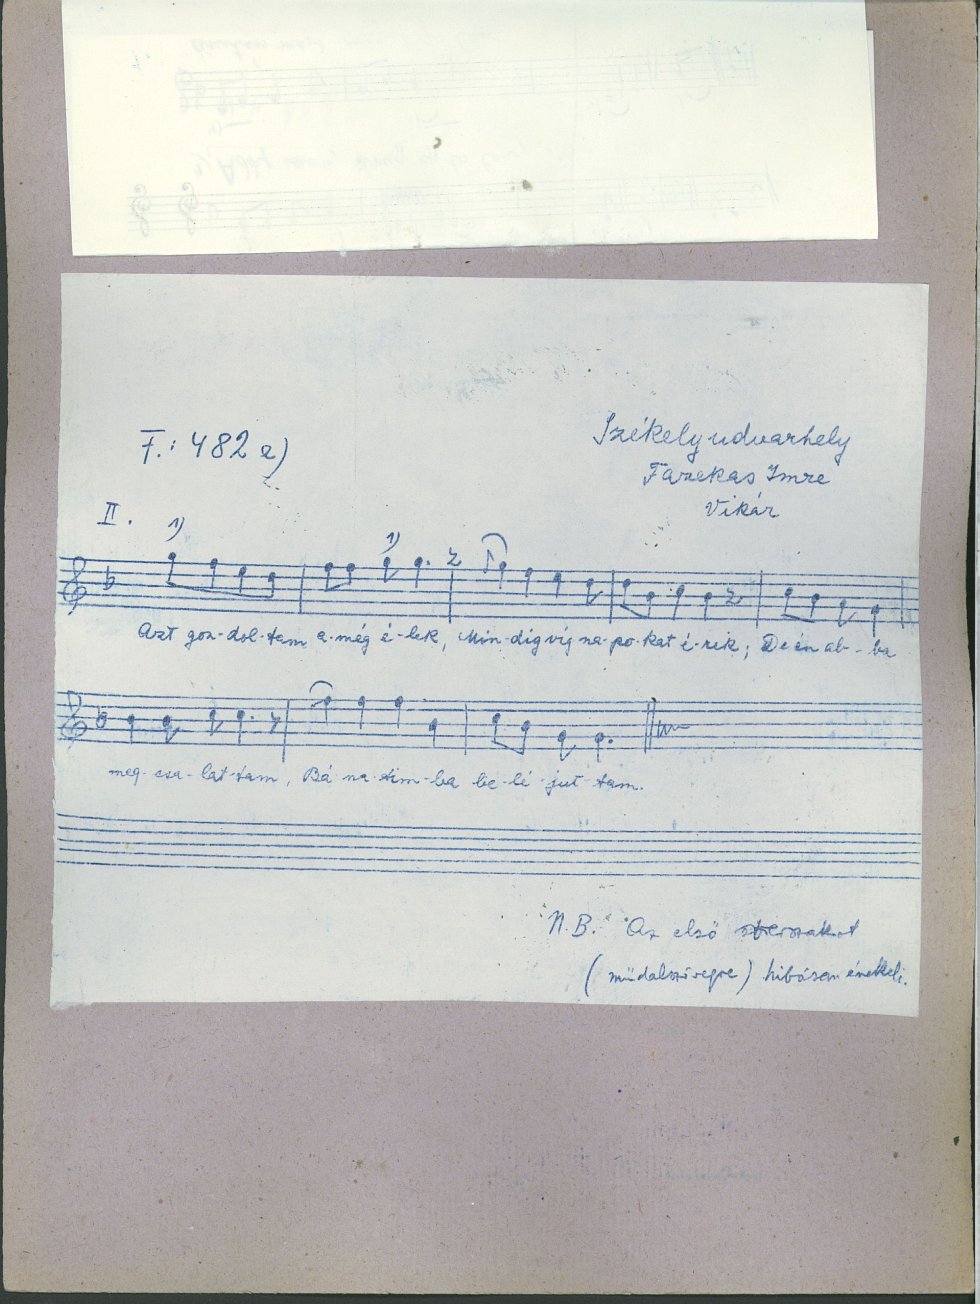 F.: 482 a)
Székelyudvarhely
Fazekas Imre
Vikár
II.
1) 1)
Azt gon-dol-tam a-míg é-lek, Min-dig víg na-po-kat é-rek; De én ab-ba
meg-csa-lat-tam, Bá-na-tim-ba be-lé-jut-tam.
N.B. Az első versszakot
(műdalszövegre) hibásan énekli.